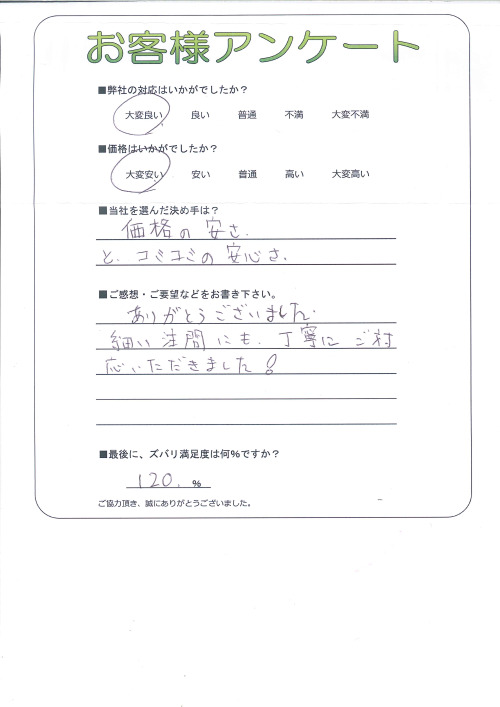 お客様アンケート
■弊社の対応はいかがでしたか？
大変良い 良い 普通 不満 大変不満
■価格はいかがでしたか？
大変安い 安い 普通 高い 大変高い
■当社を選んだ決め手は？
価格の安さ.
と、コミコミの安心さ.
■ご感想・ご要望などをお書き下さい。
ありがとうございました.
細い注問にも、丁寧にご対
応いただきました!
■最後に、ズバリ満足度は何%ですか？
120. %
ご協力頂き、誠にありがとうございました。